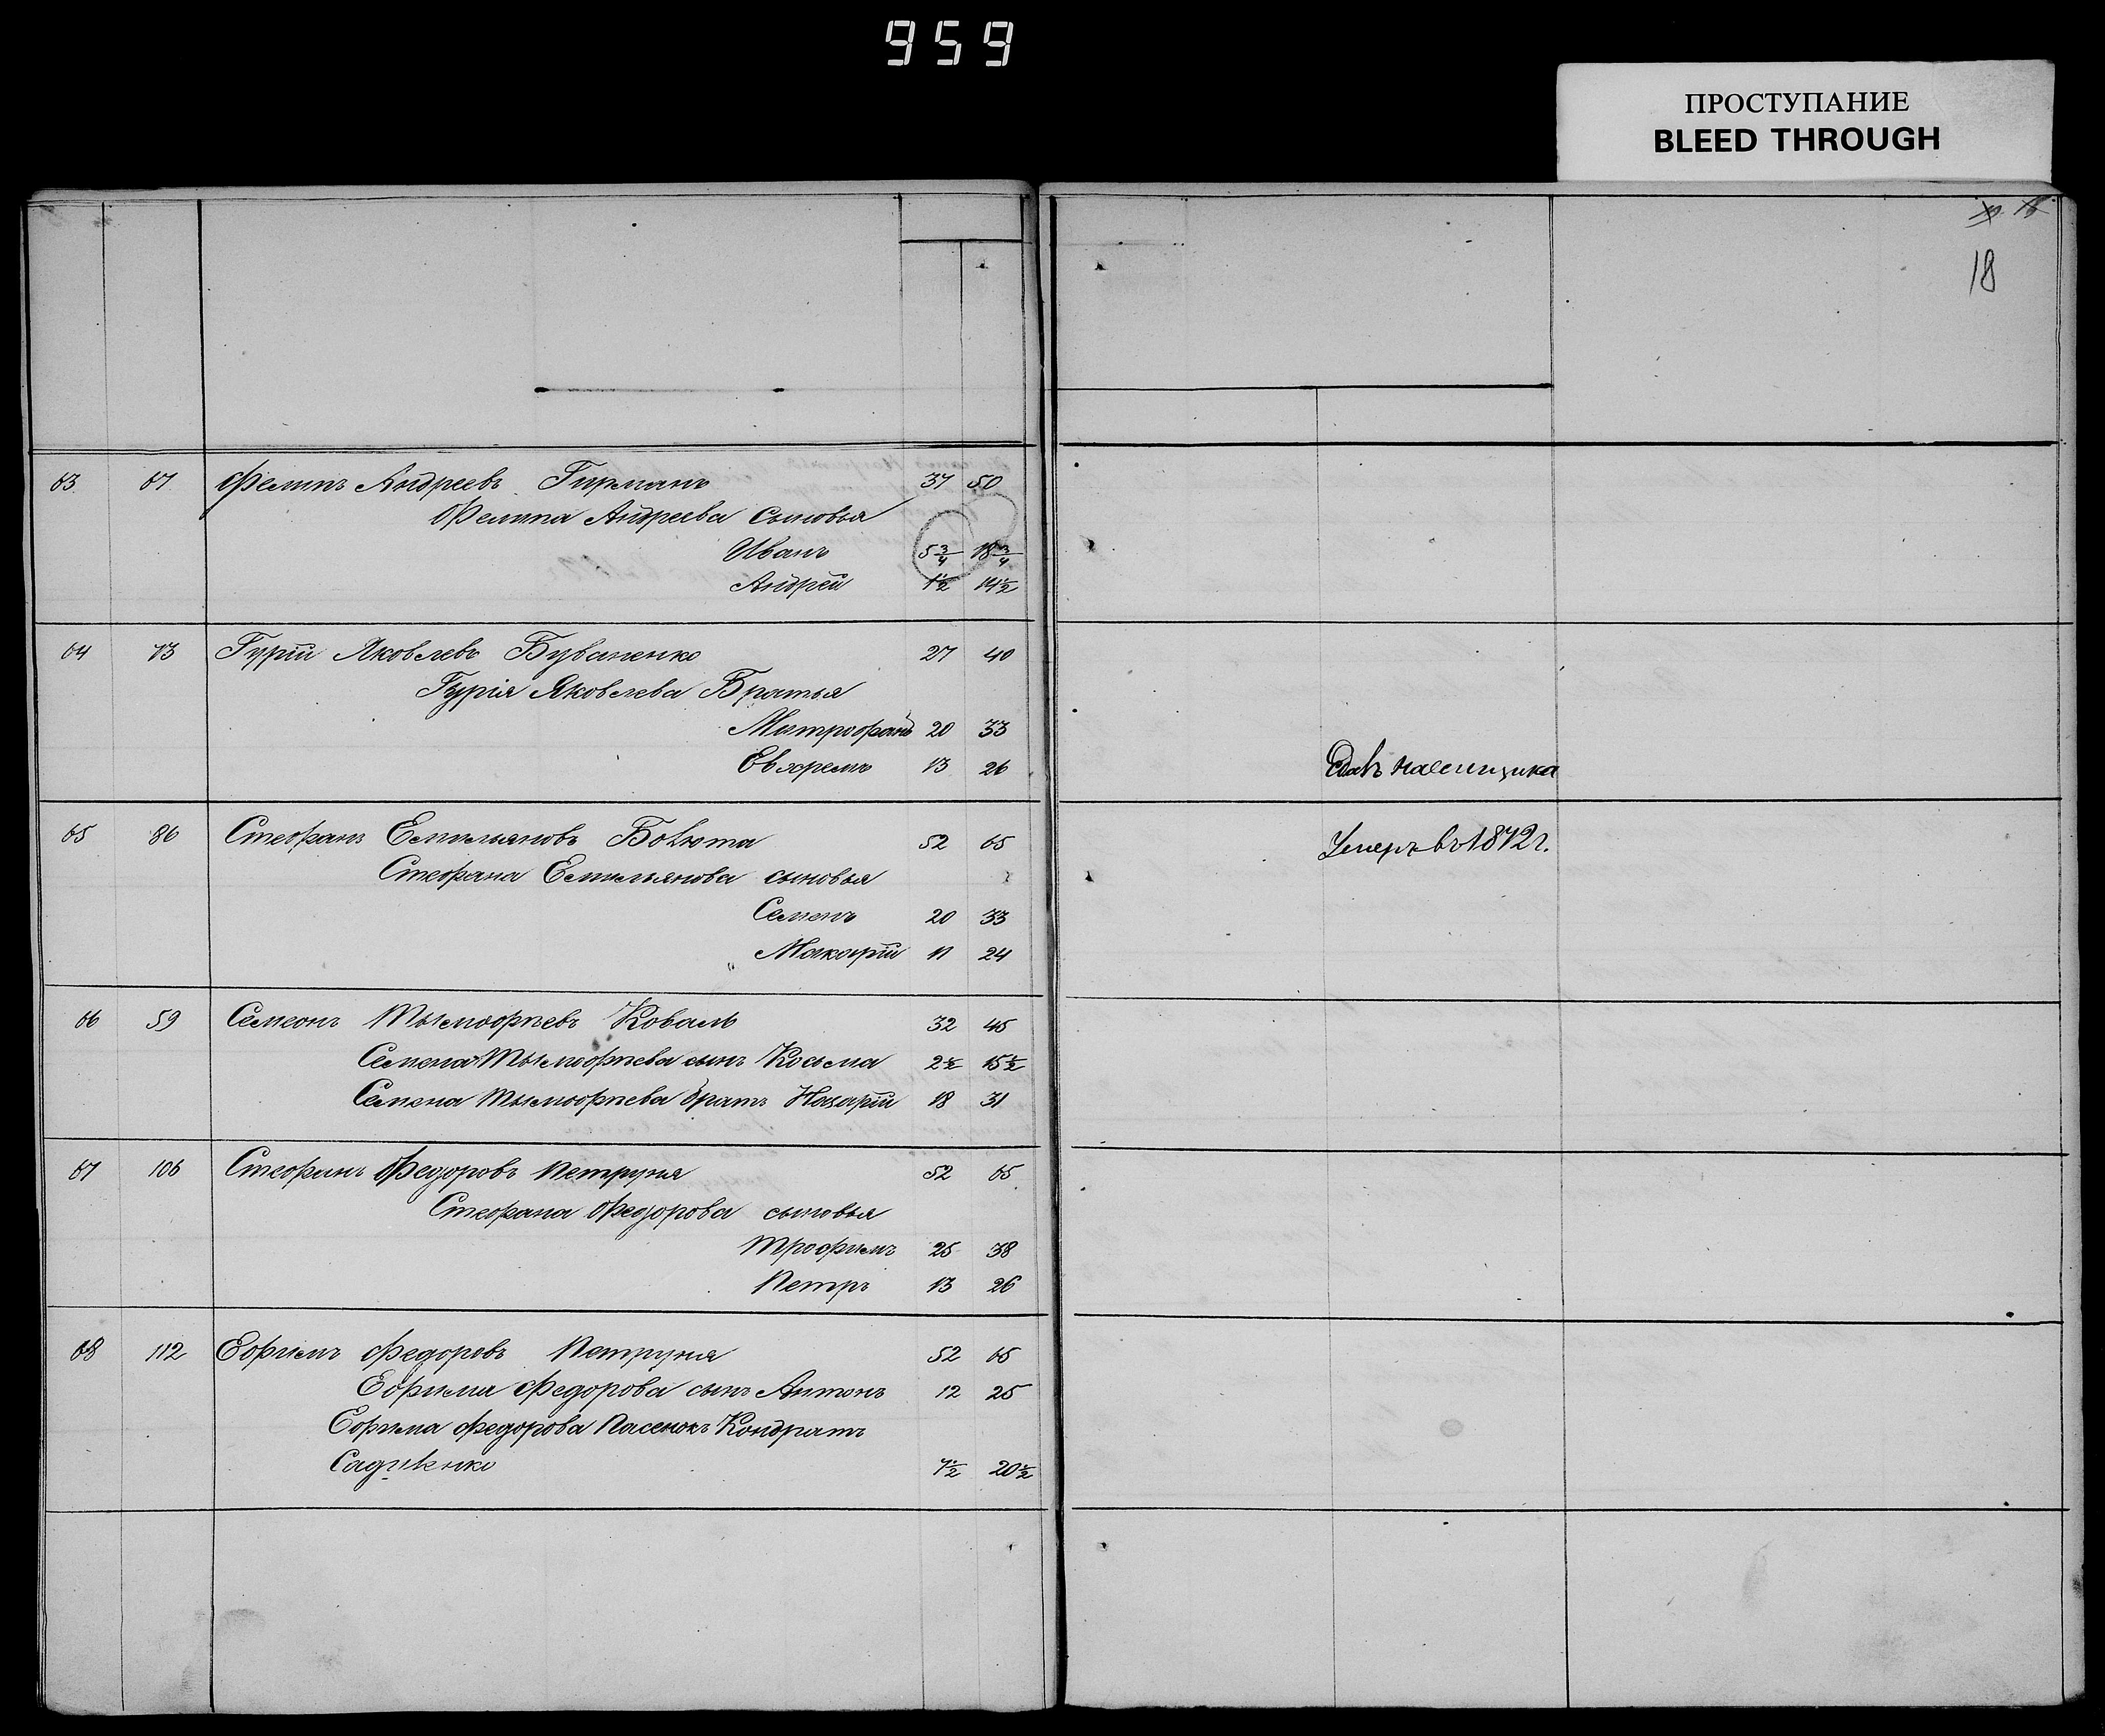 959
ПРОСТУПАНИЕ
BLEED THROUGH
18
63 67 Филипъ Андреевъ Гирманъ 37 50
Филипа Андреева сыновья
Иванъ 5 3/4 18 3/4
Андрей 1 1/2 14 1/2
64 73 Гурій Яковлевъ Буваненко 27 40
Гурія Яковлева Братья
Митрофанъ 20 33
Евфремъ 13 26 Сдавъ наемщика
65 86 Стефанъ Емильяновъ 52 65 Умеръ въ 1872 г.
Стефана Емильянова сыновья
Семенъ 20 33
Макарій 11 24
66 59 Семеонъ Тымофіевъ Коваль 32 45
Семена Тымофіева сынъ Косьма 2 1/2 15 1/2
Семена Тымофіева братъ Назарій 18 31
67 106 Стефанъ Федоровъ Петруня 52 65
Стефана Федорова сыновья
Трофимъ 25 38
Петръ 13 26
68 112 Ефимъ Федоровъ Петруня 52 65
Ефима Федорова сынъ Антонъ 12 25
Ефима Федорова Пасенокъ Кондратъ
7 1/2 20 1/2